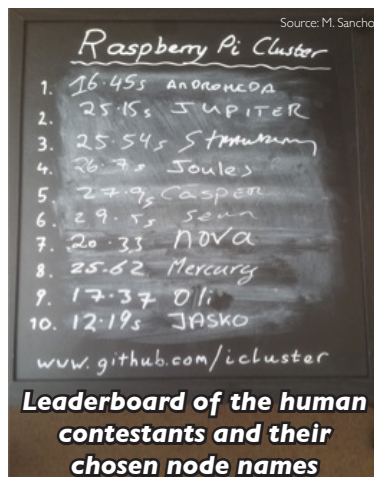 Source: M. Sancho
Raspberry Pi Cluster
1. 16.45s ANDROMEDA
2. 25.15s JUPITER
3. 25.54s Strawberry
4. 26.7s Joules
5. 27.9s CASPER
6. 29.5s Sean
7. 20.33 nova
8. 25.62 Mercury
9. 17.37 Oli
10. 12.19s JASKO
www.github.com/icluster
Leaderboard of the human
contestants and their
chosen node names